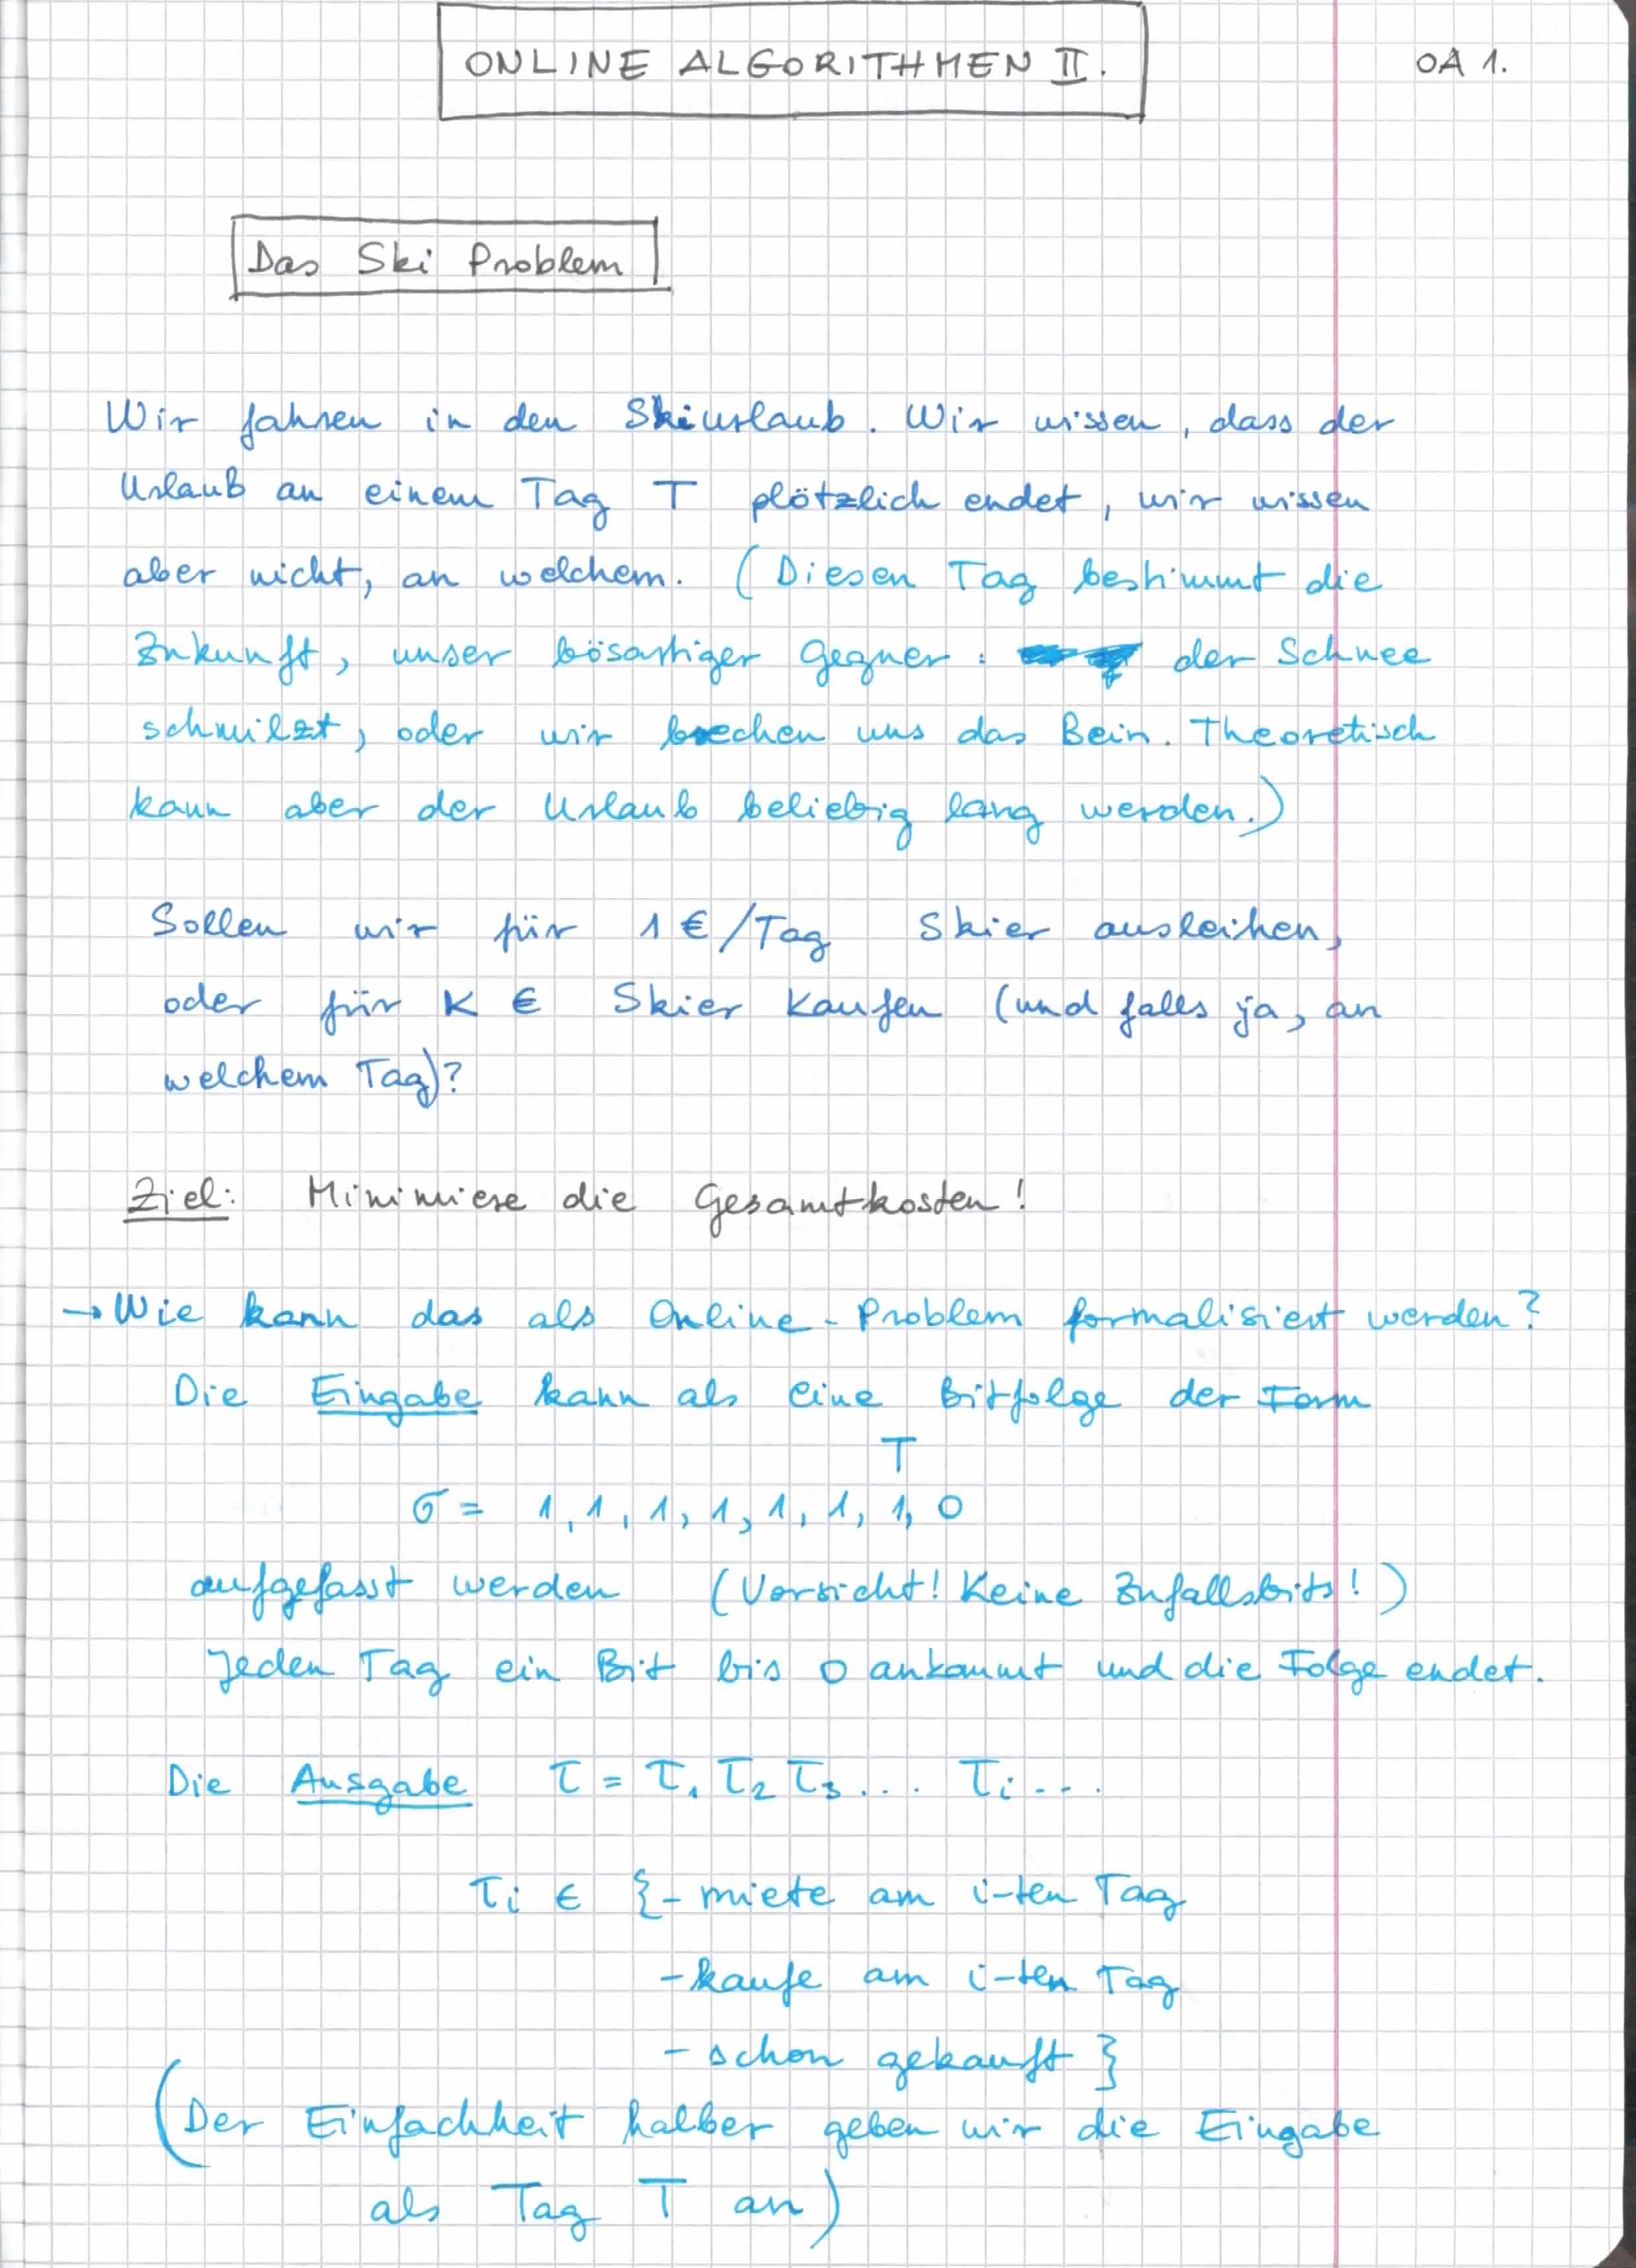 ONLINE ALGORITHMEN II.
OA 1.
Das Ski Problem
Wir fahren in den Skiurlaub. Wir wissen, dass der
Urlaub an einem Tag T plötzlich endet, wir wissen
aber nicht, an welchem. (Diesen Tag bestimmt die
Zukunft, unser bösartiger Gegner: der Schnee
schmilzt, oder wir brechen uns das Bein. Theoretisch
kann aber der Urlaub beliebig lang werden.)
Sollen wir für 1 €/Tag Skier ausleihen,
oder für K € Skier kaufen (und falls ja, an
welchem Tag)?
Ziel: Minimiere die Gesamtkosten!
→ Wie kann das als Online-Problem formalisiert werden?
Die Eingabe kann als eine Bitfolge der Form
T
σ = 1, 1, 1, 1, 1, 1, 1, 0
aufgefasst werden (Vorsicht! Keine Zufallsbits!)
Jeden Tag ein Bit bis 0 ankommt und die Folge endet.
Die Ausgabe τ = τ₁ τ₂ τ₃ ... τᵢ ...
τᵢ ∈ {- miete am i-ten Tag
- kaufe am i-ten Tag
- schon gekauft }
(Der Einfachheit halber geben wir die Eingabe
als Tag T an)